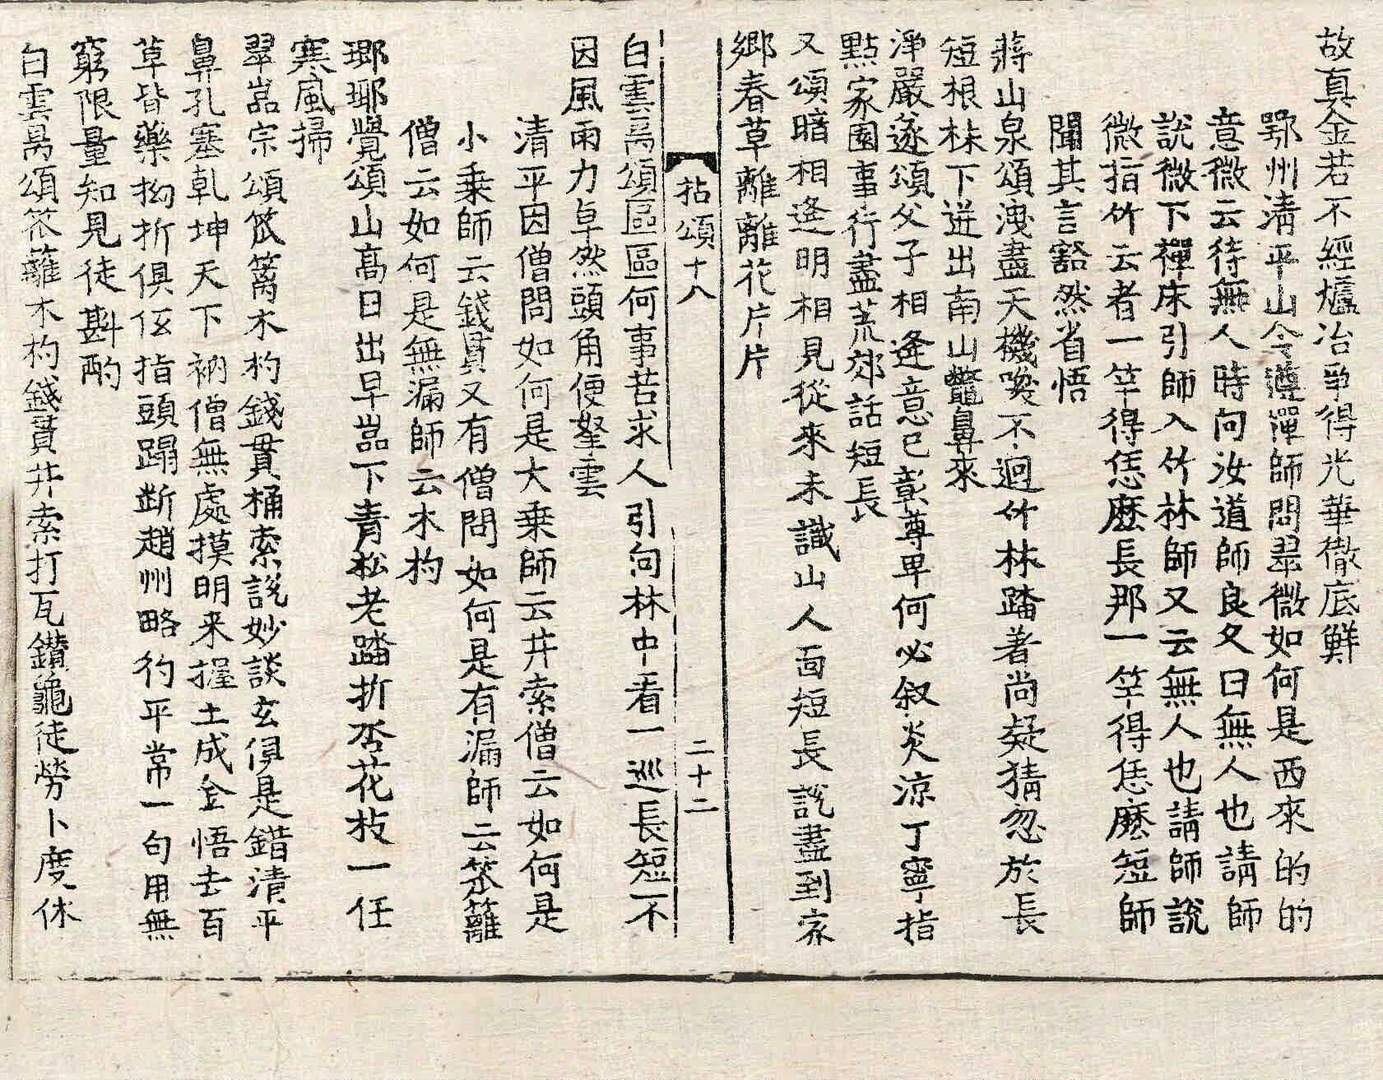 故真金若不經爐冶爭得光華徹底鮮
鄂州清平山令遵禪師問翠微如何是西來的的
意微云待無人時向汝道師良久曰無人也請師
說微下禪床引師入竹林師又云無人也請師說
微指竹云者一竿得恁麽長那一竿得恁麽短師
聞其言豁然省悟
蔣山泉頌洩盡天機喚不迴竹林踏著尚疑猜忽於長
短根株下迸出南山鼈鼻來
淨嚴遂頌父子相逢意已彰尊卑何必叙炎凉丁寧指
點家園事行盡荒郊話短長
又頌暗相逢明相見從來未識山人面短長說盡到家
鄉春草離離花片片
拈頌十八
二十二
白雲禼頌區區何事苦求人引向林中看一巡長短不
因風雨力卓然頭角便拏雲
清平因僧問如何是大乗師云井索僧云如何是
小乗師云錢貫又有僧問如何是有漏師云笊籬
僧云如何是無漏師云木杓
瑯琊覺頌山高日出早嵓下青松老踏折杏花枝一任
寒風掃
翠嵓宗頌笊篱木杓錢貫桶索說妙談玄俱是錯清平
鼻孔塞乹坤天下衲僧無處摸明来握土成金悟去百
草皆藥拗折俱伍指頭蹋斷趙州略彴平常一句用無
窮限量知見徒斟酌
白雲禼頌笊籬木杓錢貫井索打瓦鑽龜徒勞卜度休